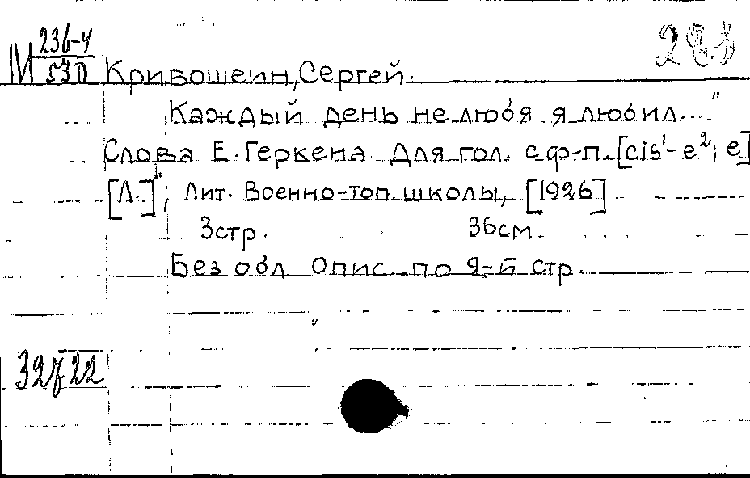 М 236-4
530
Кривошеин, Сергей.
Каждый день не любя я любил..."
Слова Е. Геркена. Для гол. с ф-п. [cis¹-e²; e]
[Л.], Лит. Военно-топ. школы, [1926]
3стр. 36см.
Без обл. Опис. по 2-й стр.